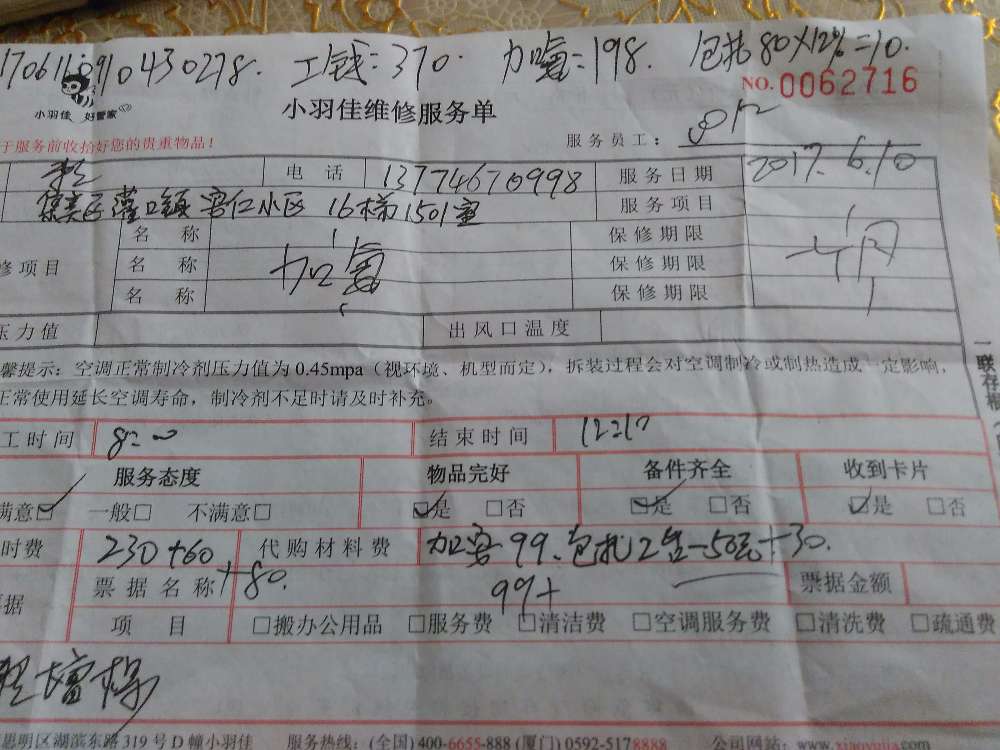 1706110910430278. 工钱:370. 加氟:198. 包扎80×12%=10.
NO.0062716
小羽佳 好管家
小羽佳维修服务单
于服务前收拾好您的贵重物品！
服务员工：
电话 13774670998 服务日期 2017.6.10
集美区灌口镇安仁小区 16梯1501室 服务项目
名称 保修期限
修项目 名称 加氟 保修期限
名称 保修期限
压力值 出风口温度
馨提示：空调正常制冷剂压力值为 0.45mpa（视环境、机型而定），拆装过程会对空调制冷或制热造成一定影响，
正常使用延长空调寿命，制冷剂不足时请及时补充。
一联存根
工时间 8:00 结束时间 12:17
服务态度 物品完好 备件齐全 收到卡片
满意☑ 一般□ 不满意□ ☑是 □否 ☑是 □否 ☑是 □否
时费 230+60+80. 代购材料费 99.包扎2 +30.
票据名称 99+ 票据金额
票据
项目 □搬办公用品 □服务费 □清洁费 □空调服务费 □清洗费 □疏通费
思明区湖滨东路 319 号 D 幢小羽佳 服务热线：(全国) 400-6655-888 (厦门) 0592-5178888 公司网站：www.xiaoyujia.com